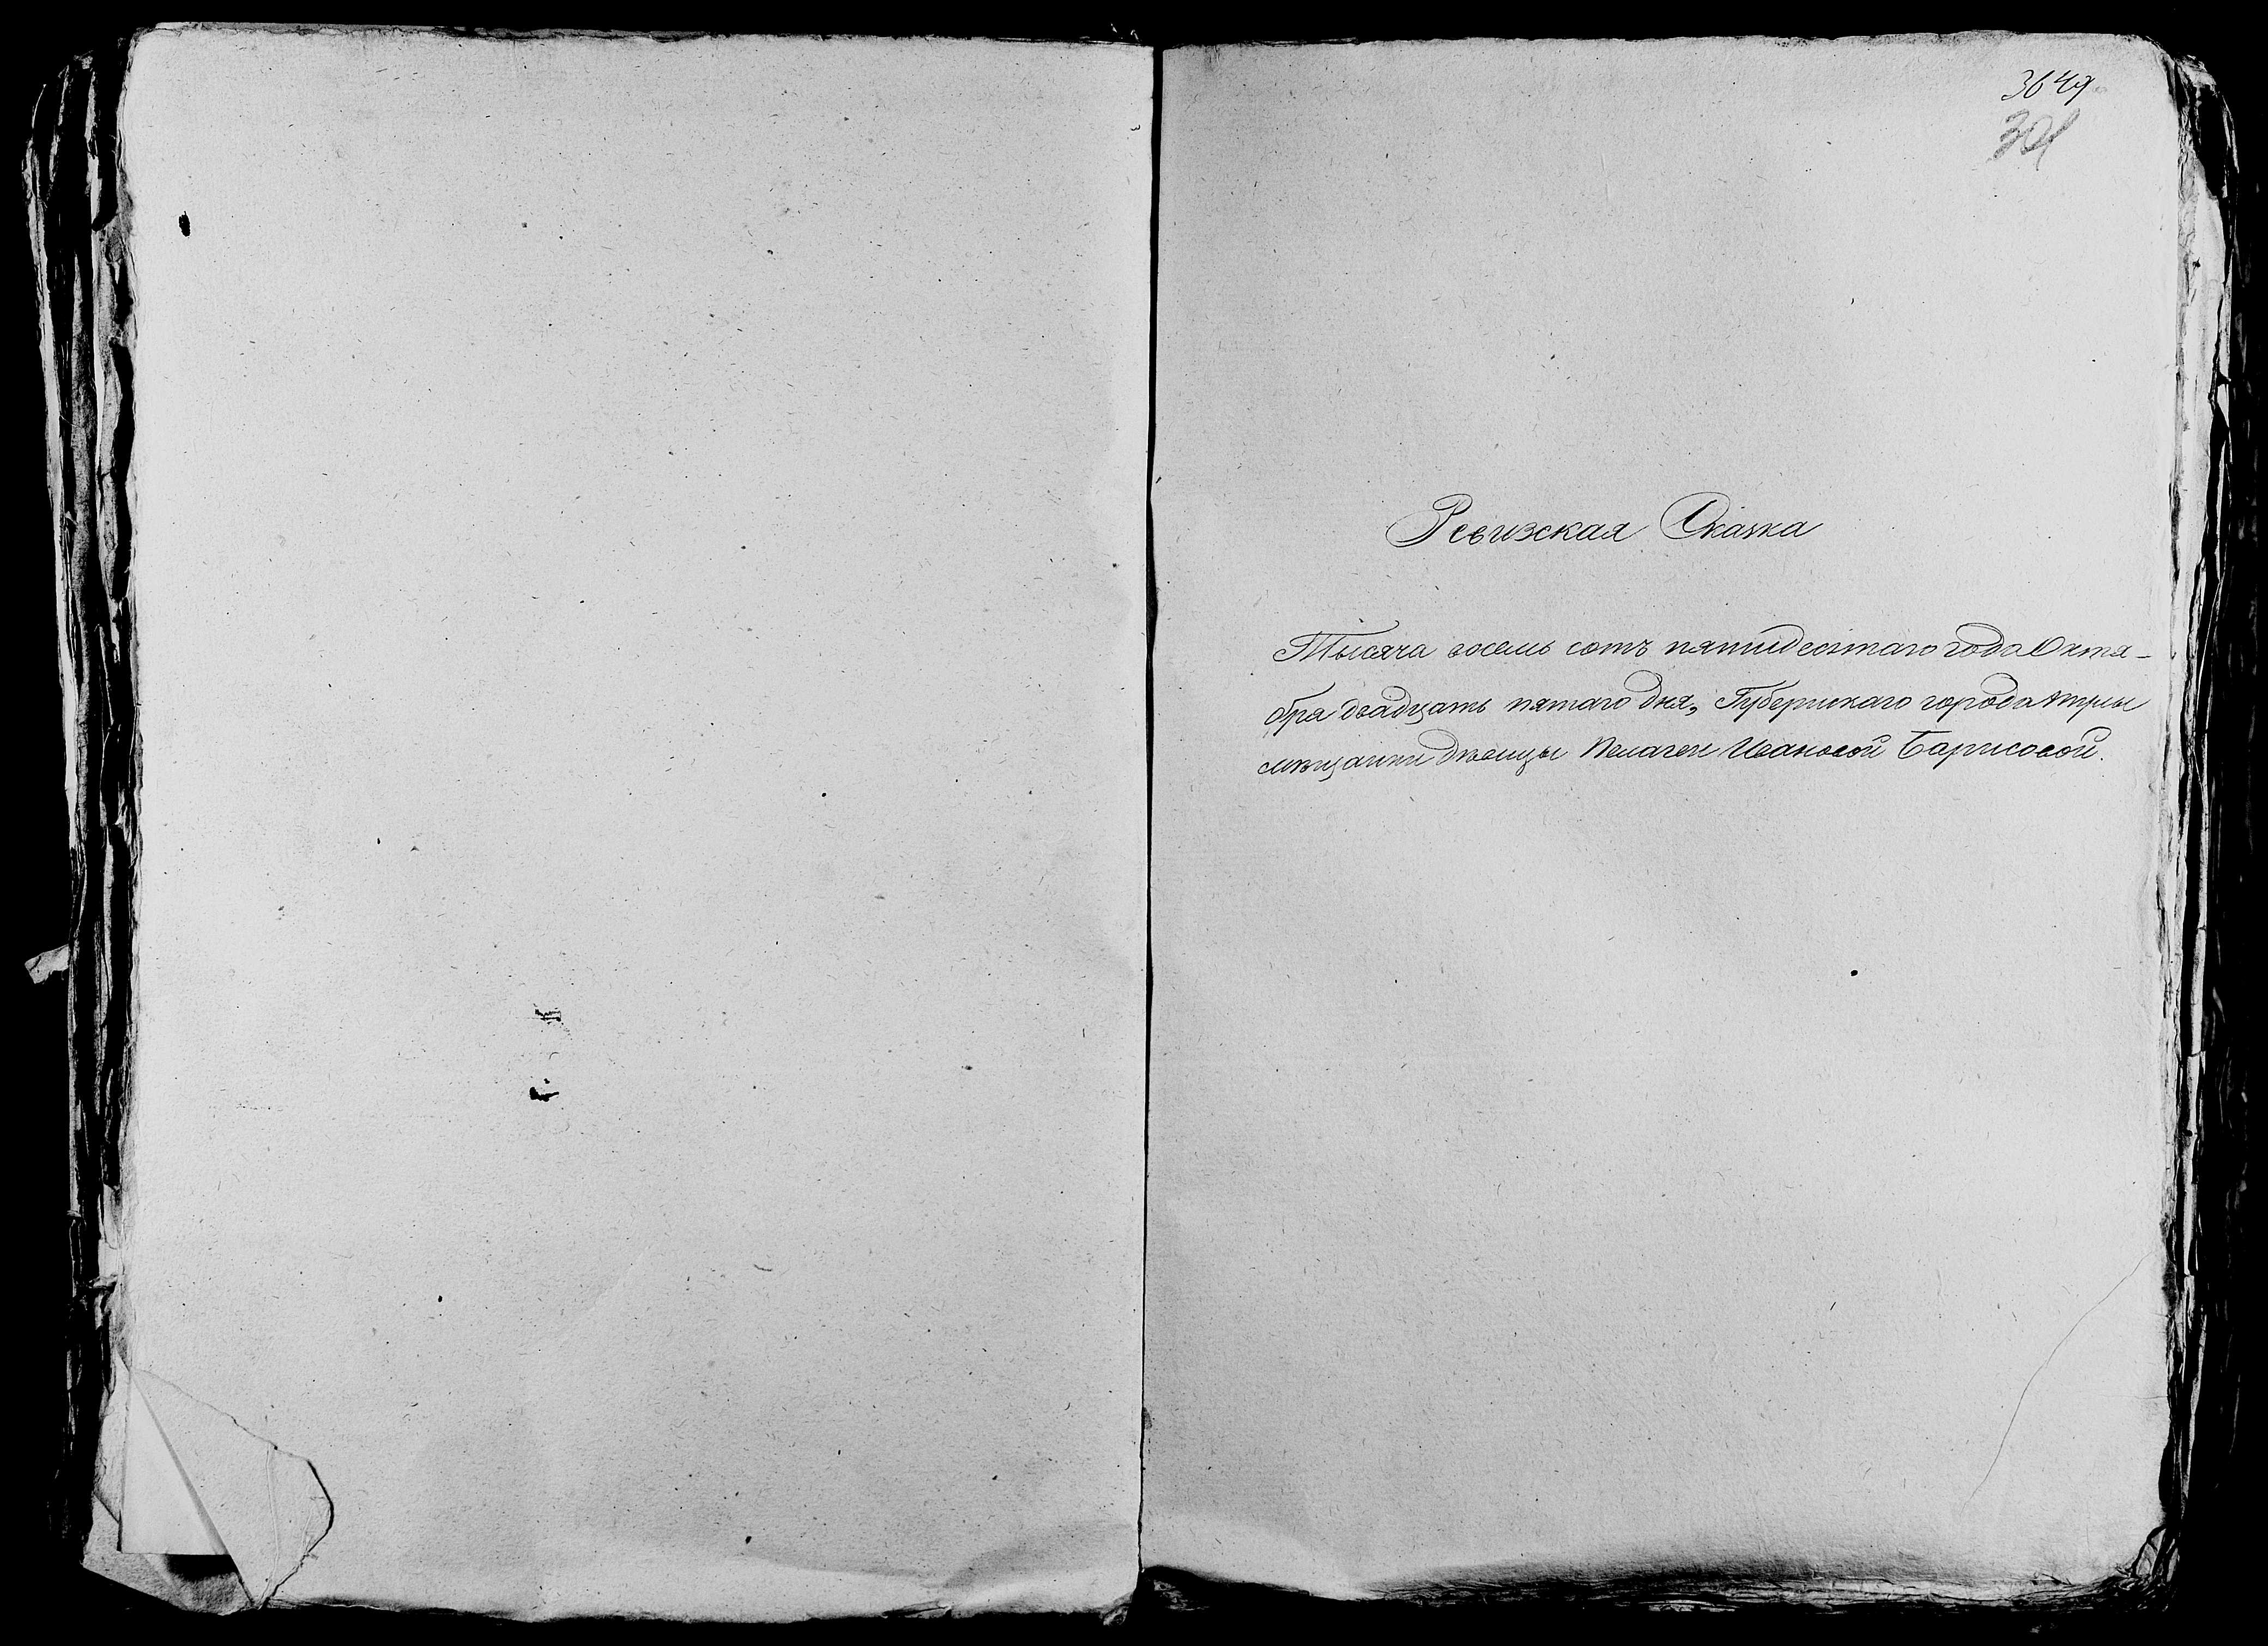 Ревизская Сказка
Тысяча восемь сотъ пятидесятаго года Октя-
бря двадцать пятаго дня, Губернскаго города Тулы
мѣщанки дѣвицы Пелагеи Ивановой Барисовой.